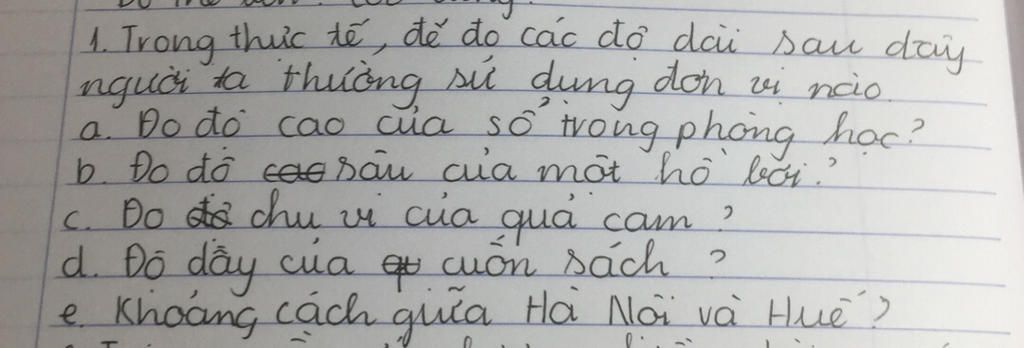 1. Trong thực tế, để đo các độ dài sau đây
người ta thường sử dụng đơn vị nào.
a. Đo độ cao cửa sổ trong phòng học?
b. Đo độ cao sâu của một hồ bơi?
c. Đo độ chu vi của quả cam?
d. Độ dầy của qu cuốn sách?
e. Khoảng cách giữa Hà Nội và Huế?